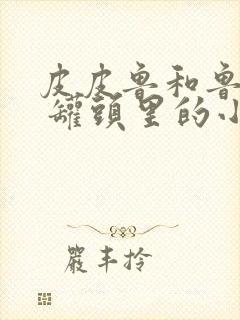 皮皮鲁和鲁
罐頭里的小
嚴丰拎